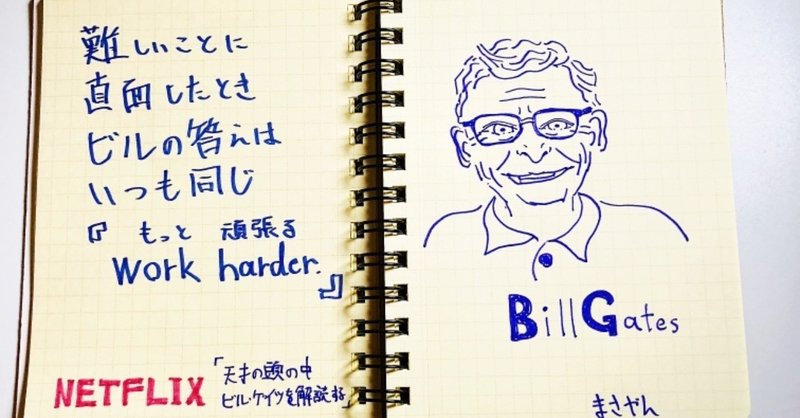 難しいことに
直面したとき
ビルの答えは
いつも同じ
『もっと 頑張る
Work harder.』
NETFLIX
「天才の頭の中
ビル・ゲイツを解読する」
Bill Gates
まさやん